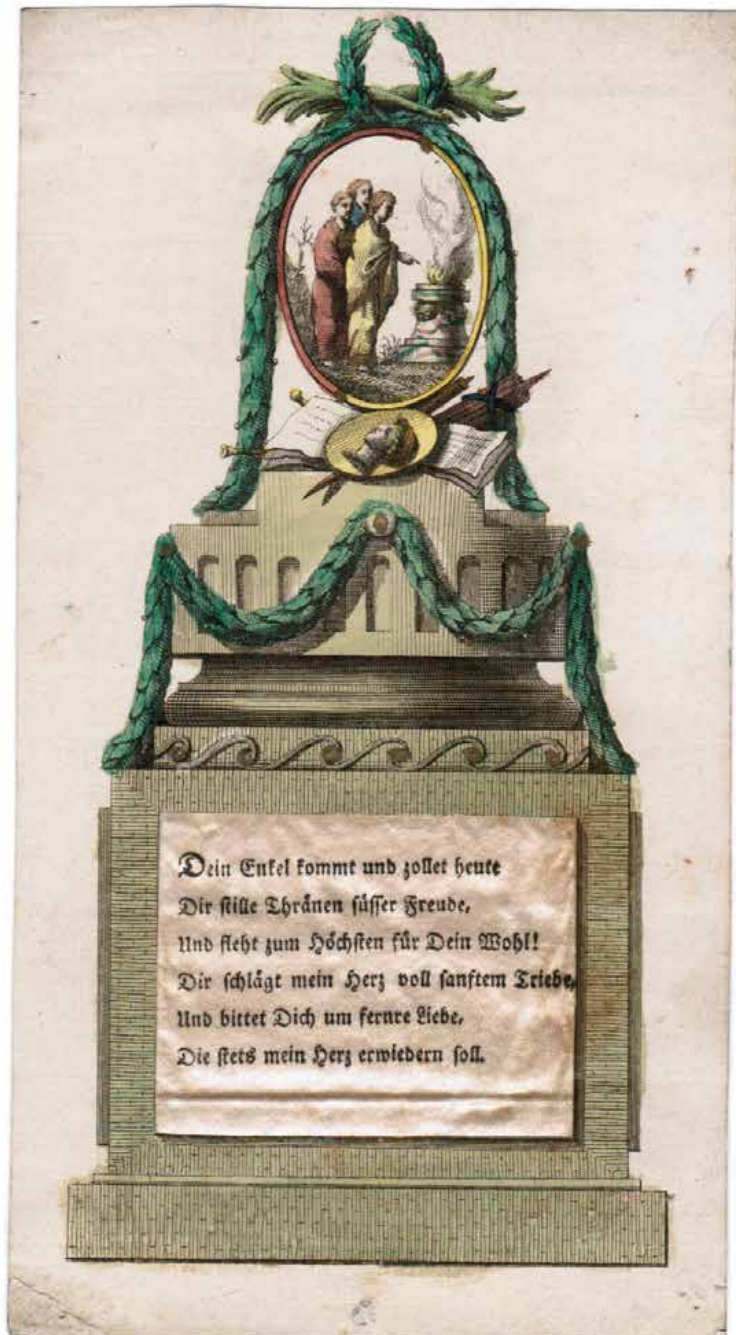 Dein Enkel kommt und zollet heute
Dir stille Thränen süsser Freude,
Und fleht zum Höchsten für Dein Wohl!
Dir schlägt mein Herz voll sanftem Triebe,
Und bittet Dich um fernre Liebe,
Die stets mein Herz erwiedern soll.